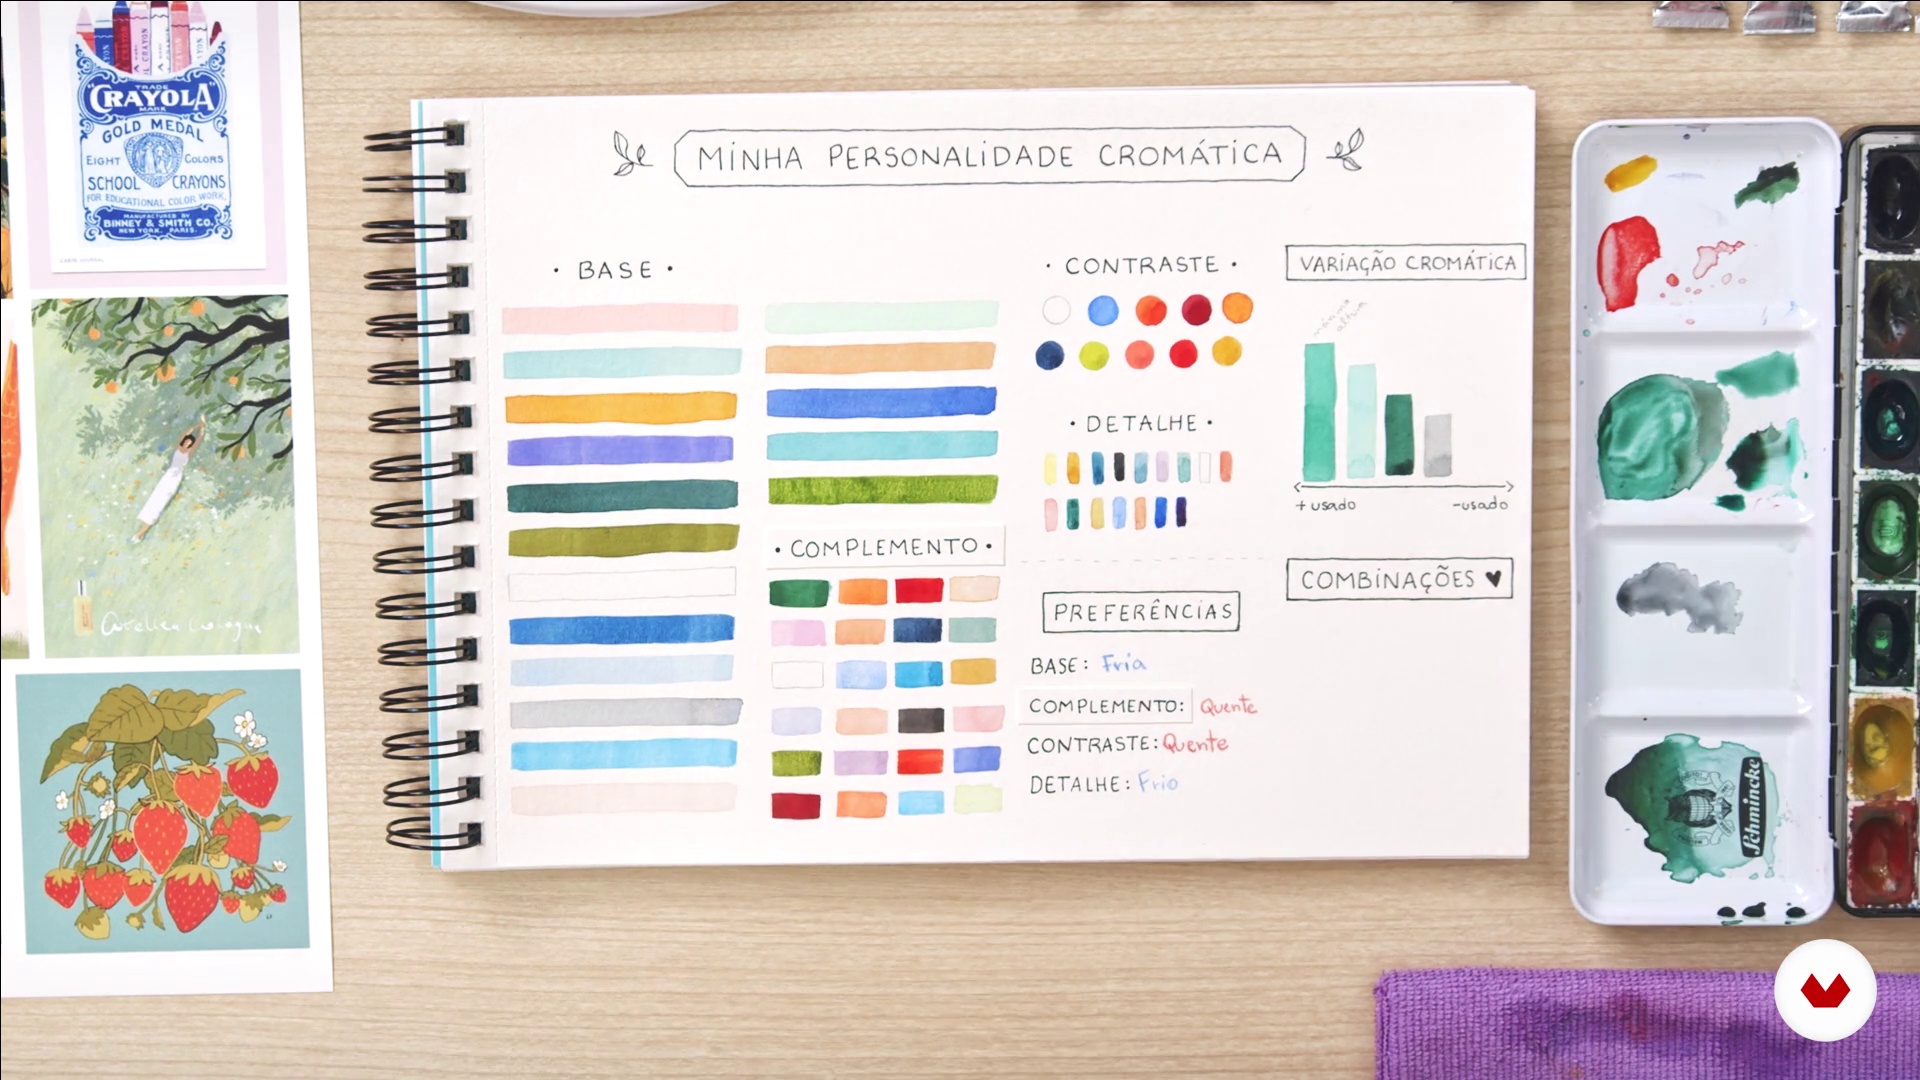 TRADE
"CRAYOLA"
MARK
GOLD MEDAL
EIGHT COLORS
SCHOOL CRAYONS
FOR EDUCATIONAL COLOR WORK.
MANUFACTURED BY
BINNEY & SMITH CO.
NEW YORK, PARIS.
MINHA PERSONALIDADE CROMÁTICA
• BASE •
• COMPLEMENTO •
• CONTRASTE •
• DETALHE •
PREFERÊNCIAS
BASE: Fria
COMPLEMENTO: Quente
CONTRASTE: Quente
DETALHE: Frio
VARIAÇÃO CROMÁTICA
altura
+ usado
- usado
COMBINAÇÕES ♥
Schmincke